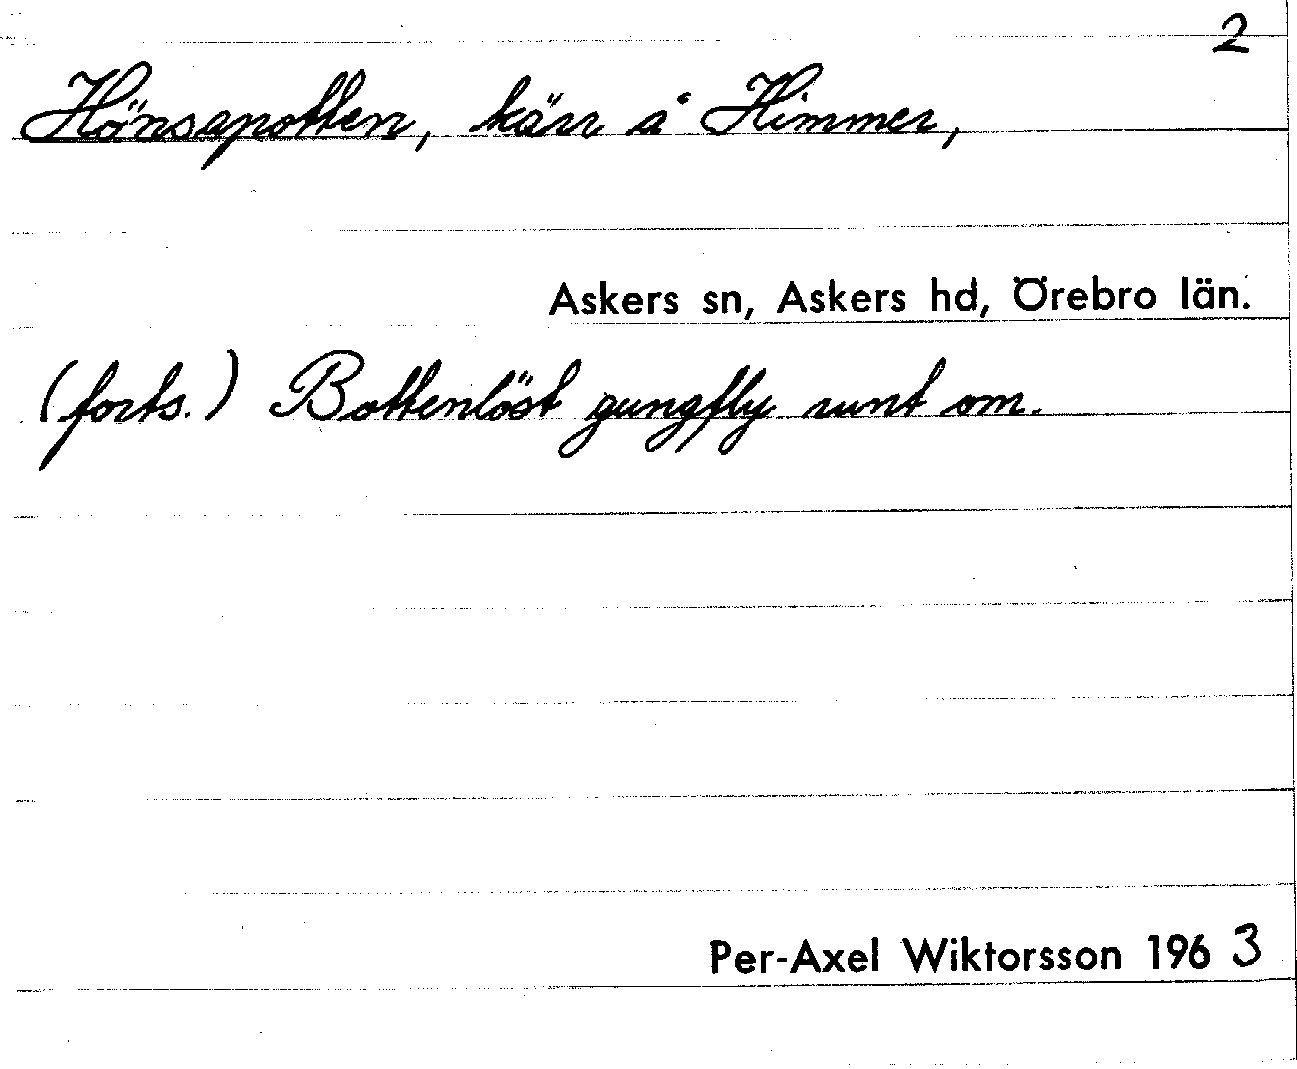 2
Hönsapotten, kärr å Himmer,
Askers sn, Askers hd, Örebro län.
(forts.) Bottenlöst gungfly runt om.
Per-Axel Wiktorsson 1963